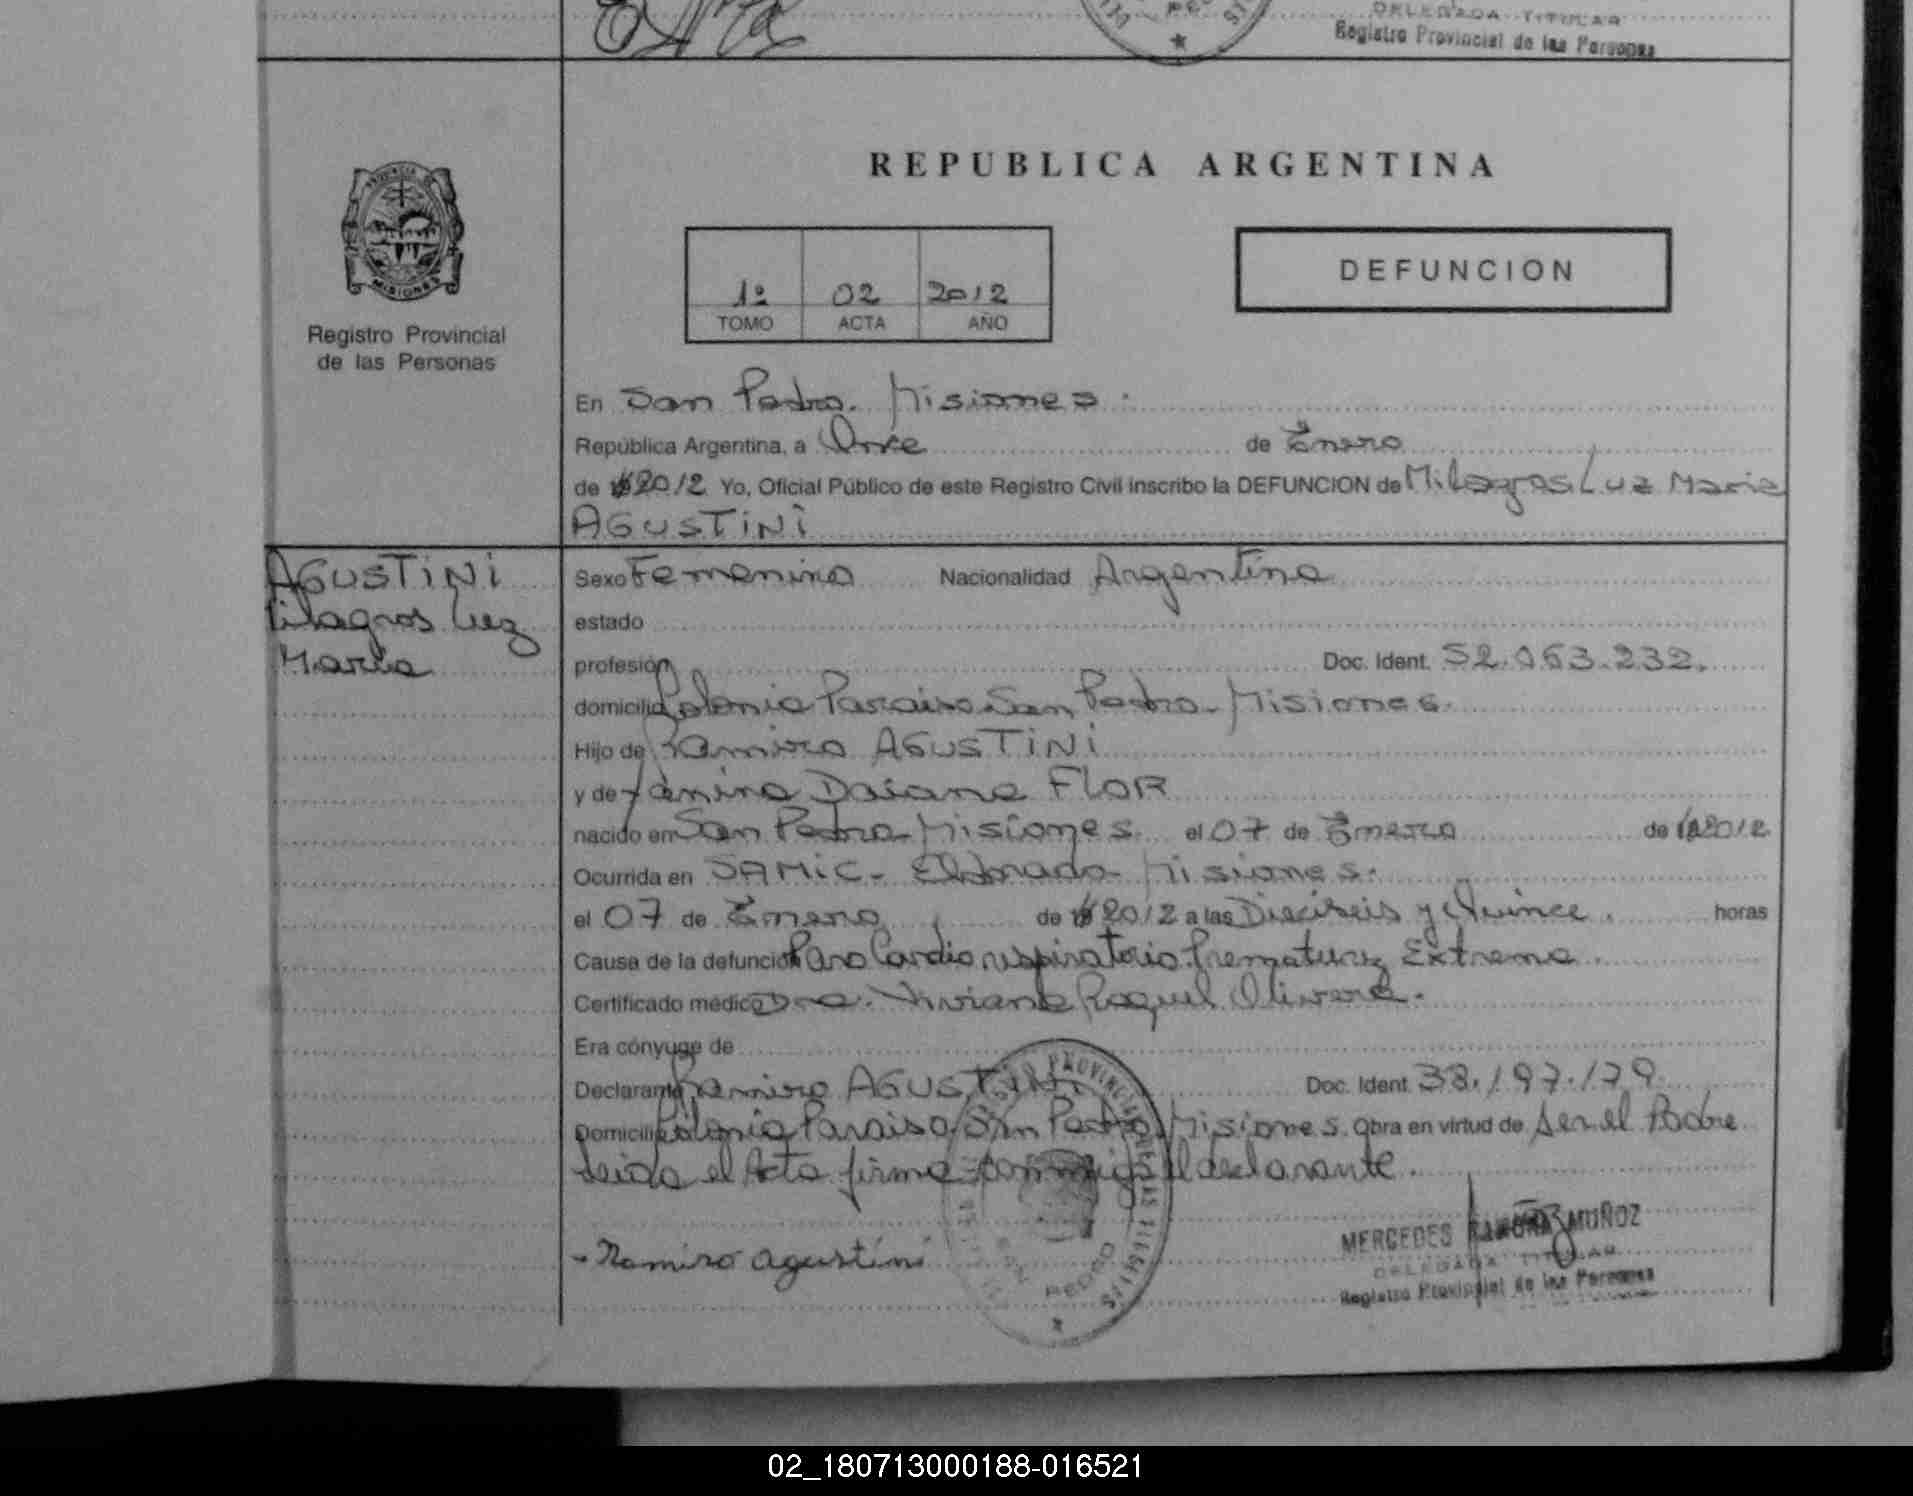 DELEGADA TITULAR
Registro Provincial de las Personas
REPUBLICA ARGENTINA
PROVINCIA DE
MISIONES
Registro Provincial
de las Personas
1º 02 2012
TOMO ACTA AÑO
DEFUNCION
En San Pedro. Misiones.
República Argentina, a Once de Enero
de 2012 Yo, Oficial Público de este Registro Civil inscribo la DEFUNCION de Milagros Luz Maria
AGUSTINI
AGUSTINI
Milagros Luz
Maria
Sexo Femenino Nacionalidad Argentina
estado
profesión Doc. Ident. 52.063.232.
domicilio Colonia Paraiso San Pedro. Misiones.
Hijo de Ramiro AGUSTINI
y de Yanina Daiana FLOR
nacido en San Pedro Misiones. el 07 de Enero de 2012
Ocurrida en SAMIC - Eldorado - Misiones.
el 07 de Enero de 2012 a las Dieciseis y Quince. horas
Causa de la defunción Paro Cardio respiratorio. Prematurez Extrema.
Certificado médico Dra. Viviana Raquel Olivera.
Era cónyuge de
Declarante Ramiro AGUSTINI Doc. Ident. 38.197.179
Domicilio Colonia Paraiso San Pedro Misiones. Obra en virtud de Ser el Padre
Leida el Acta firma conmigo el declarante.
- Ramiro Agustini
REGISTRO PROVINCIAL DE LAS PERSONAS
SAN PEDRO
MERCEDES RAMONA MUÑOZ
DELEGADA TITULAR
Registro Provincial de las Personas
02_180713000188-016521